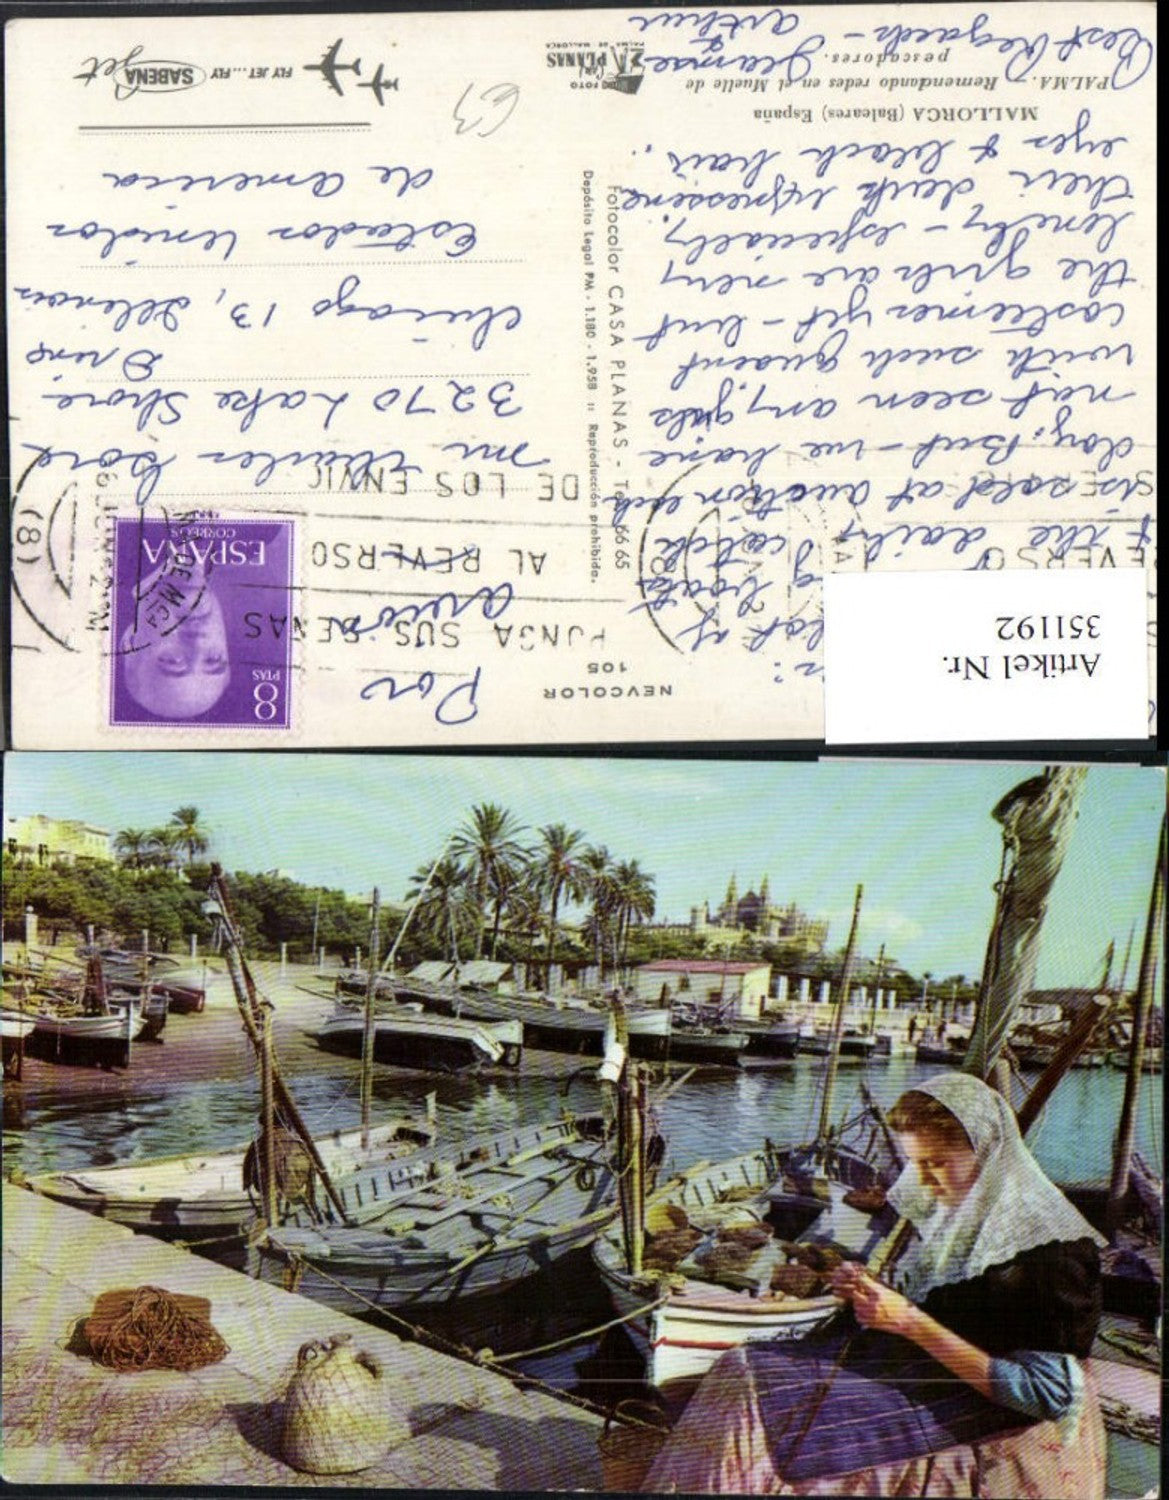 MALLORCA (Baleares) España
PALMA. - Remendando redes en el Muelle de
pescadores.
FOTO
PLANAS
PALMA DE MALLORCA
of
boats
& the daily catch
is sold at auction each
day. But - we have
not seen any girls
with such quaint
costumes yet - but
the girls are very
lovely - especially
their dark expressive
eyes & black hair.
Best Regards - Jeanne
&
Arthur
NEVCOLOR
105
Fotocolor CASA PLANAS - Tel. 66 65
Depósito Legal PM - 1.180 - 1.958 :: Reproducción prohibida.
8
PTAS
CORREOS
ESPAÑA
PONGA SUS SEÑAS
AL REVERSO
DE LOS ENVIO
(8)
Por
avion
Mr Charles Gore
3270 Lake Shore
Drive
Chicago 13, Illinois
Estados Unidos
de America
FLY JET...FLY SABENA Jet
Artikel Nr.
351192